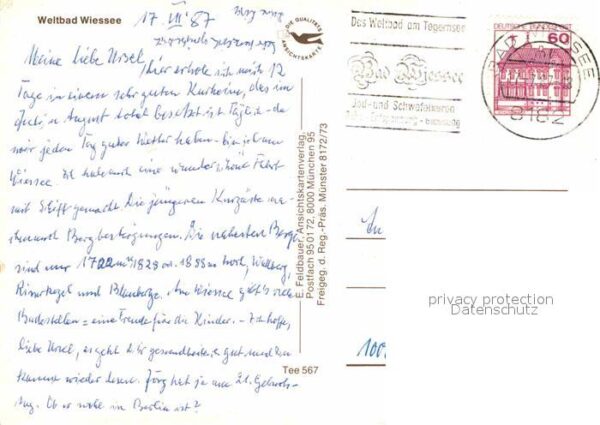 Weltbad Wiessee
17. VII 87
Meine liebe Ursel,
hier erhole ich mich 12
Tage in einem sehr guten Kurheim, das im
Juli u. August total besetzt ist. Täglich - da
wir jeden Tag gutes Wetter haben - bin ich am
Wiessee. Ich habe auch eine wunderschöne Fahrt
mit Schiff gemacht. Die jüngeren Kurgäste
Bergbesteigungen. Die nächsten Berge
sind nur 1722 m, 1828 od. 1888 m hoch, Wallberg,
Risserkogel und Blauberge. Am Wiessee gibt's viele
Badestellen = eine Freude für die Kinder. - Ich hoffe,
liebe Ursel, es geht Dir gesundheitlich gut und
wieder lesen. Jörg hat ja nun 21. Geburts-
tag. Ob er wohl in Berlin ist?
DIE QUALITÄTS
ANSICHTSKARTE
E. Feldbauer, Ansichtskartenverlag,
Postfach 95 01 72, 8000 München 95
Freigeg. d. Reg.-Präs. Münster 8172/73
Tee 567
Das Weltbad am Tegernsee
Bad Wiessee
Jod- und Schwefelbäder
DEUTSCHE BUNDESPOST
60
BAD WIESSEE
8182
100
privacy protection
Datenschutz